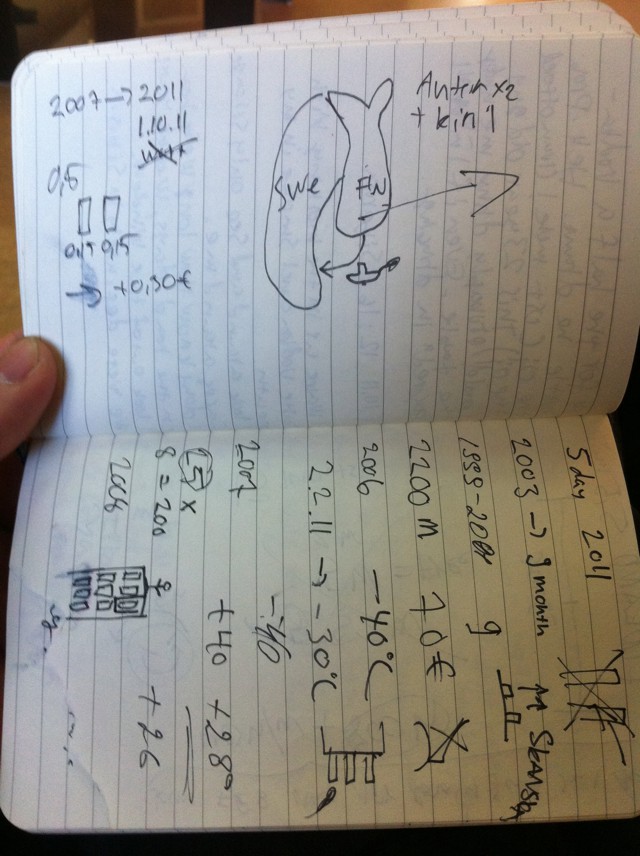 2007 → 2011
1.10.11
0,5
0,5 0,5
+0,30€
Swe
Fi
+ kin 1
5 day 2011
2003 → 9 month M Skanska
1999-2001 9
2200 m 70€
2006 -40°C
2.2.11 → -30°C
-40
2007 +40 +28°
x
8 = 200 +26
2008